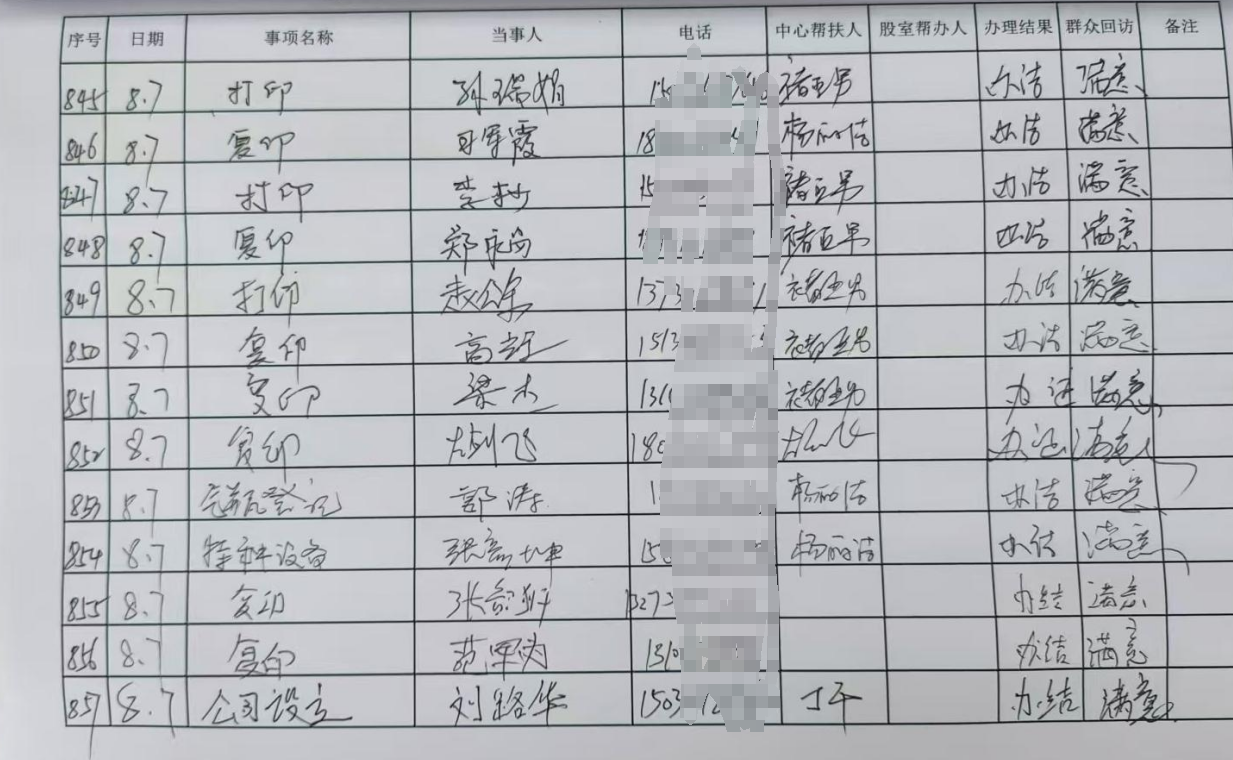 序号 日期 事项名称 当事人 电话 中心帮扶人 股室帮办人 办理结果 群众回访 备注
845 8.7 打印 孙瑞娟 褚亚男 办结 满意
846 8.7 复印 军霞 杨丽洁 办结 满意
847 8.7 打印 李 褚亚男 办结 满意
848 8.7 复印 郑永 褚亚男 办结 满意
849 8.7 打印 赵 137 褚亚男 办结 满意
850 8.7 复印 高 1513 褚亚男 办结 满意
851 8.7 复印 梁杰 131 褚亚男 办结 满意
852 8.7 复印 飞 180 办结 满意
853 8.7 登记 郭涛 杨丽洁 办结 满意
854 8.7 特种设备 张 坤 15 杨丽洁 办结 满意
855 8.7 复印 张 办结 满意
856 8.7 复印 范军 131 办结 满意
857 8.7 公司设立 刘路华 1503 丁干 办结 满意